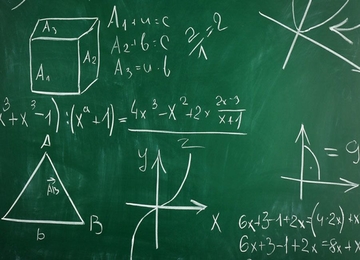 A₃
A₂
A₁
A₁+u=c
A₂+b=c
A₃=u·b
2/1=2
x³+x³-1):(xᵃ+1)=4x³-x²+2x (2x-3)/(x+1)
A
A₁B
B
b
y
z
x
= 9
6x+3-1+2x=(4·2x)+x
6x+3-1+2x=8x+x